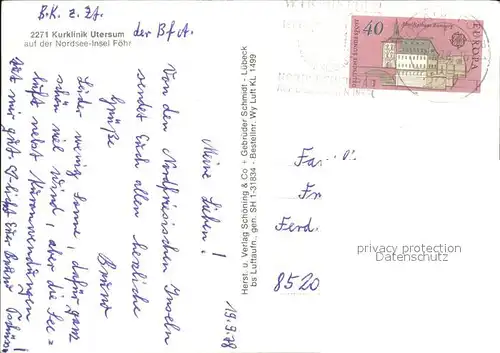 B.K. z. Zt.
2271 Kurklinik Utersum
auf der Nordsee-Insel Föhr
der BfA.
19.9.78
Meine Lieben!
Von den Nordfriesischen Inseln
sendet Euch allen herzliche
Grüße
Bruno
Leider wenig Sonne, dafür ganz
schön viel Wind, aber die See=
luft nebst Kuranwendungen
tut mir gut. Euer Bruno Tschüss!
Herst. u. Verlag Schöning & Co + Gebrüder Schmidt - Lübeck
bs Luftaufn., gen. SH 1-31834 - Bestellnr. Wy Luft KL 1499
40
EUROPA
CEPT
DEUTSCHE BUNDESPOST
Fa
Fr
Ferd.
8520
privacy protection
Datenschutz